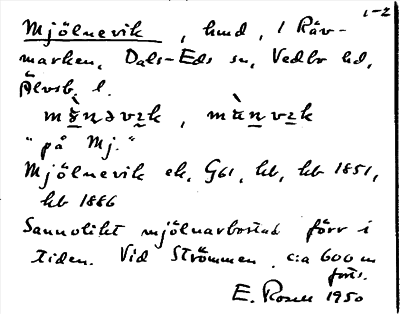 1-2
Mjölnevik, hmd, i Räv-
marken, Dals-Eds sn, Vedbo hd,
Älvsb. l.
"på Mj."
Mjölnevik ek, G61, hb, hb 1851,
hb 1886
Sannolikt mjölnarbostad förr i
tiden. Vid Strömmen c:a 600 m
forts.
E. Rosell 1950